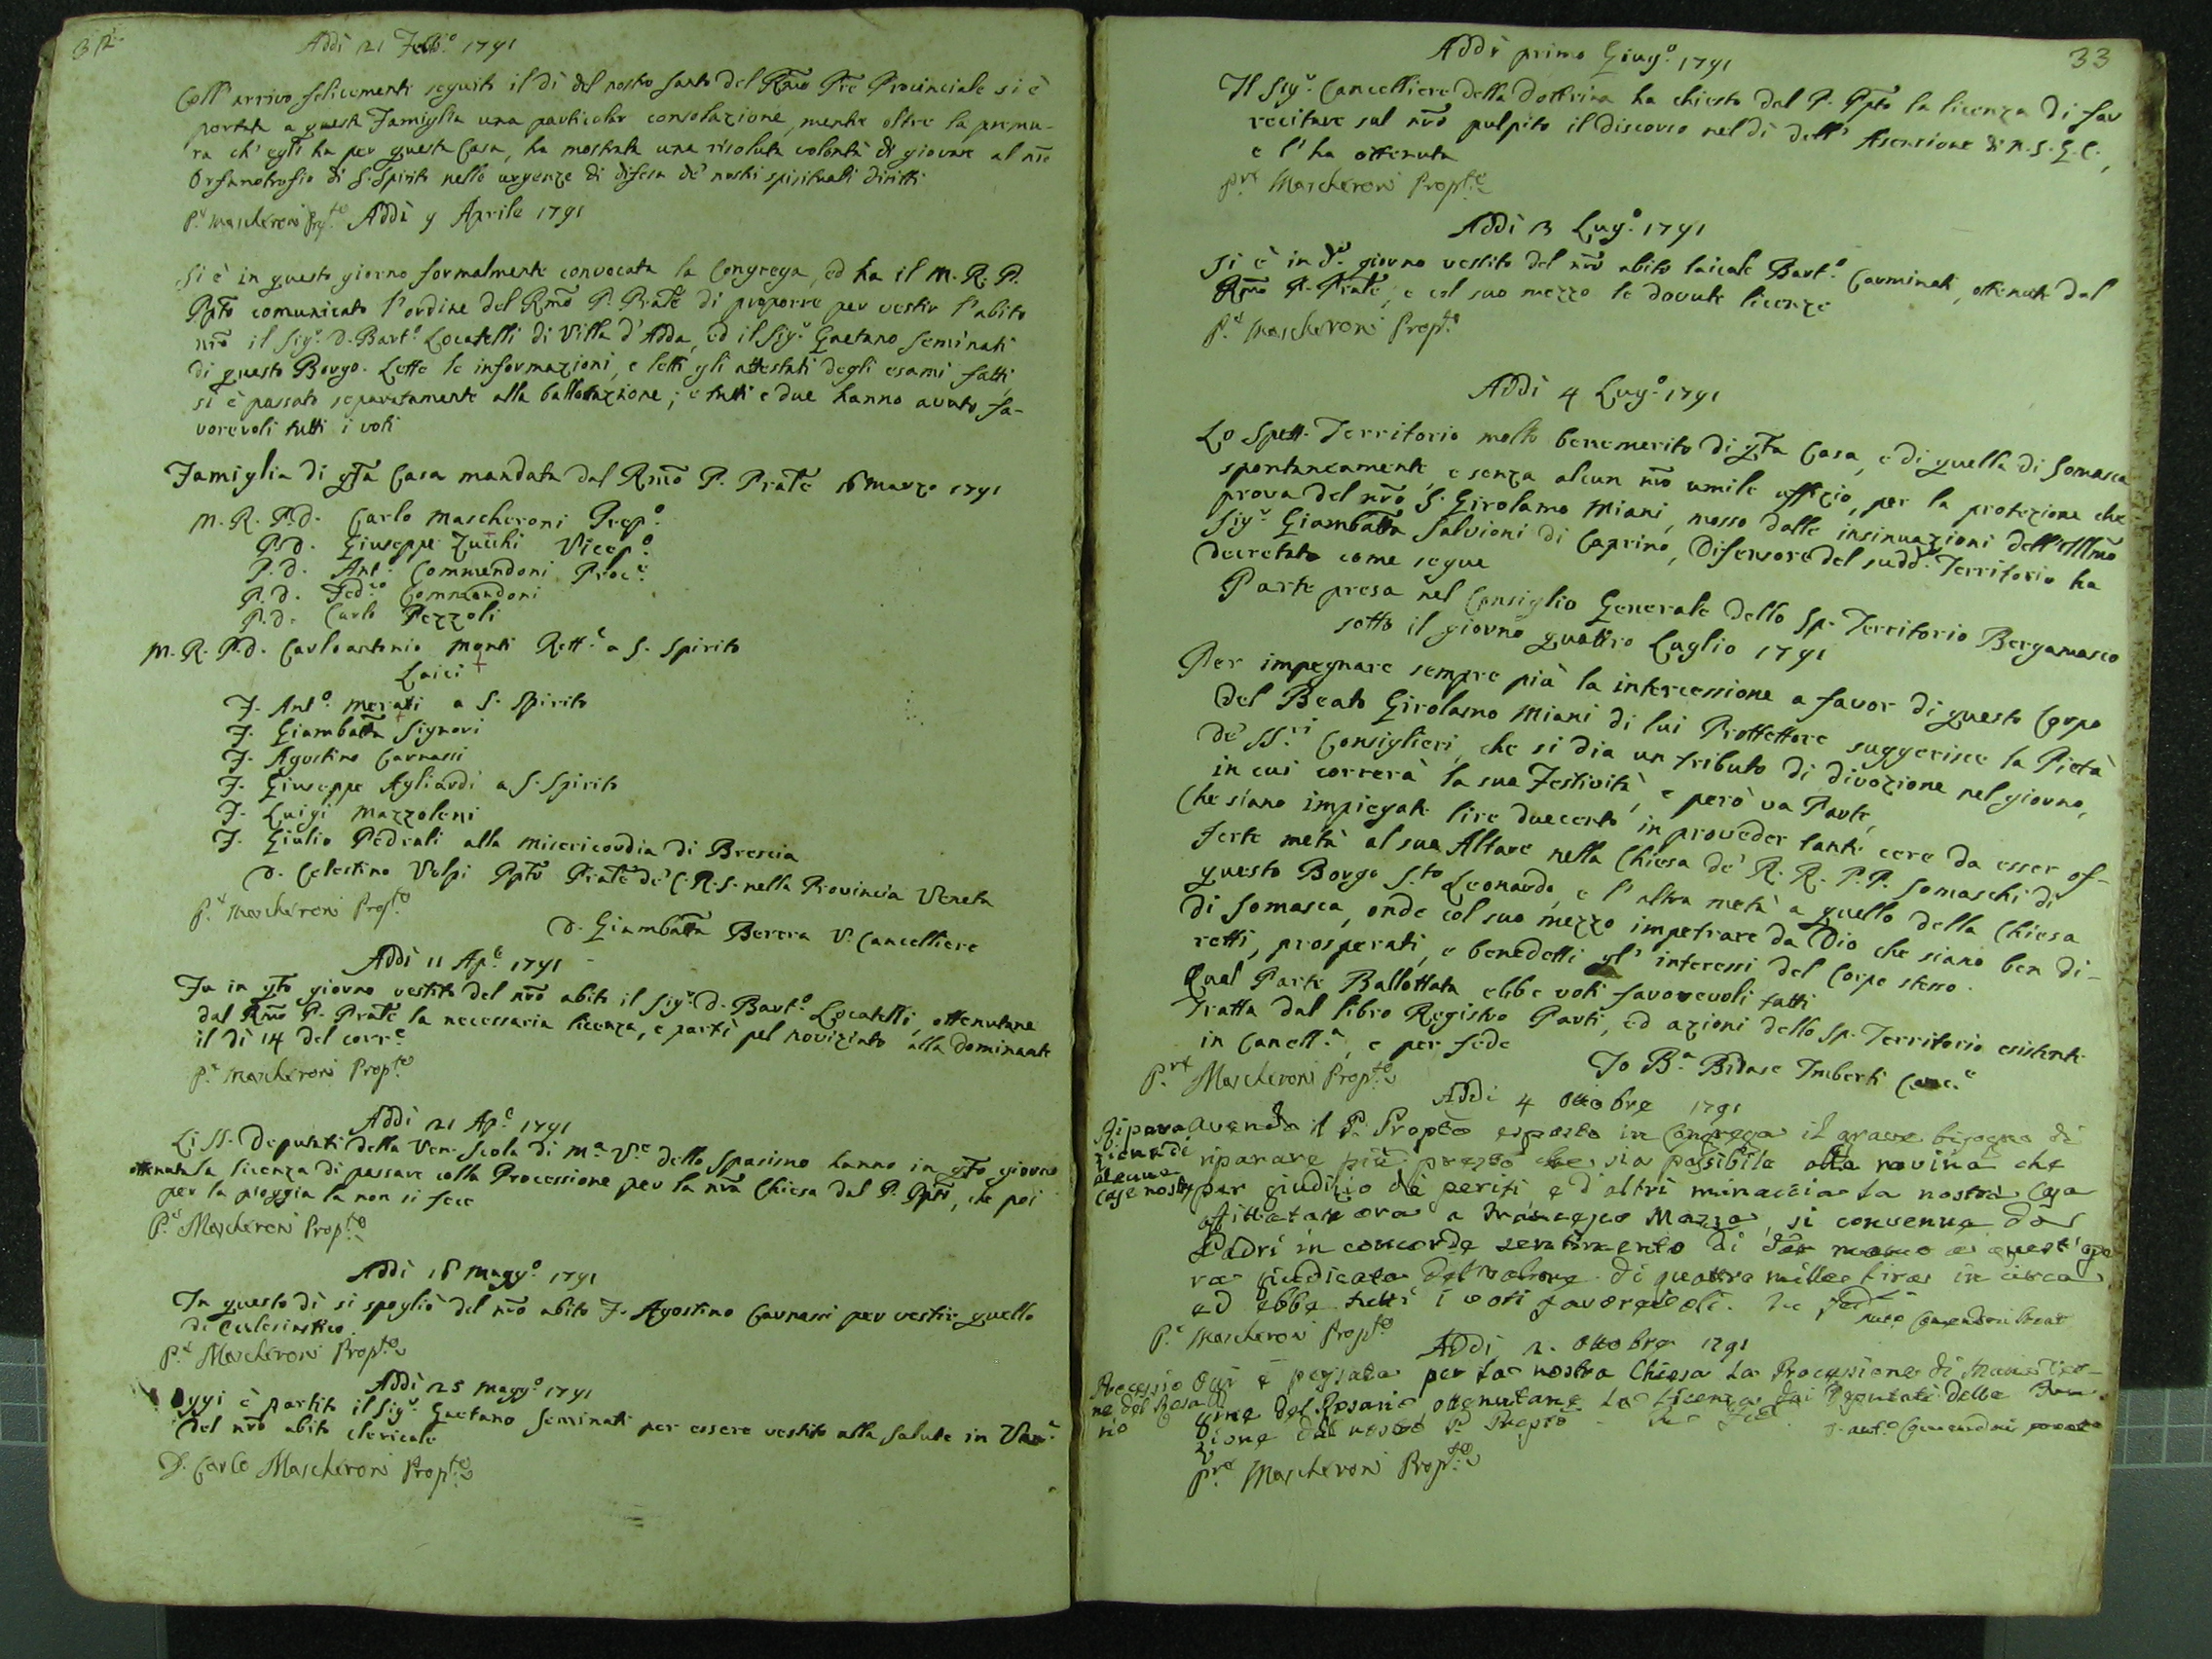 32
Addì 21 Febb.º 1791
Coll' arrivo felicemente seguito il dì del nostro Santo del Rm̃o Pr̃e Provinciale si è
portata a questa Famiglia una particolar consolazione, mentre oltre la premu-
ra ch' egli ha per questa Casa, ha mostrata una risoluta volontà di giovare al nr̃o
Orfanotrofio di S. Spirito nelle urgenze di difesa de' nostri spirituali diritti
P.e Mascheroni Prep.to Addì 9 Aprile 1791
Si è in questo giorno formalmente convocata la Congrega, ed ha il M. R. P.
Pp̃to comunicato l'ordine del Rm̃o P. Prãle di proporre per vestir l'abito
nr̃o il Sig.r D. Bart.º Locatelli di Villa d'Adda, ed il Sig.r Gaetano Seminati
di questo Borgo. Lette le informazioni, e letti gli attestati degli esami fatti,
si è passato separatamente alla ballotazione; e tutti e due hanno avuto fa-
vorevoli tutti i voti
Famiglia di qta Casa mandata dal Rm̃o P. Prãle 16 Marzo 1791
M. R. P. d. Carlo Mascheroni Prep.º
P. d. Giuseppe Zucchi Vicep.º
P. d. Ant.º Commendoni Proc.e
P. d. Fed.co Commendoni
P. d. Carlo Pezzoli
M. R. P. d. Carloantonio Monti Rett.e a S. Spirito
Laici
F. Ant.º Merati a S. Spirito
F. Giambatta Signori
F. Agostino Carnassi
F. Giuseppe Agliardi a S. Spirito
F. Luigi Mazzoleni
F. Giulio Pedrali alla Misericordia di Brescia
D. Celestino Volpi Pp̃to Prãle de' C. R. S. nella Provincia Veneta
P.e Mascheroni Prep.to
D. Giambatta Berera V. Cancelliere
Addì 11 Ap.e 1791
Fu in qto giorno vestito del nr̃o abito il Sig.r D. Bart.º Locatelli, ottenutane
dal Rm̃o P. Prãle la necessaria licenza, e partì pel noviziato alla Dominante
il dì 14 del corr.e
P.e Mascheroni Prep.to
Addì 21 Ap.e 1791
Li SS. Deputati della Ven. Scola di M.a V.e dello Spasimo hanno in qto giorno
ottenuta la licenza di passare colla Processione per la nr̃a Chiesa dal P. Pp̃to, che poi
per la pioggia la non si fece
P.e Mascheroni Prep.to
Addì 16 Magg.º 1791
In questo dì si spogliò del nr̃o abito F. Agostino Carnassi per vestir quello
di Ecclesiastico.
P.e Mascheroni Prep.to
Addì 25 Magg.º 1791
Oggi è partito il Sig.r Gaetano Seminati per essere vestito alla Salute in Ven.a
del nr̃o abito clericale
D. Carlo Mascheroni Prep.to
33
Addì primo Giug.º 1791
Il Sig.r Cancelliere della Dottrina ha chiesto dal P. Pp̃to la licenza di far
recitare sul nr̃o pulpito il discorso nel dì dell' Ascensione di N. S. G. C.,
e l'ha ottenuta
P.re Mascheroni Prep.to
Addì 3 Lug.º 1791
Si è in d.º giorno vestito del nr̃o abito laicale Bart.º Carminati, ottenute dal
Rm̃o P. Prãle, e col suo mezzo le dovute licenze
P.e Mascheroni Prep.to
Addì 4 Lug.º 1791
Lo Spett. Territorio molto benemerito di qta Casa, e di quella di Somasca
spontaneamente e senza alcun nr̃o umile uffizio, per la protezione che
prova del nr̃o S. Girolamo Miani, mosso dalle insinuazioni dell' Illm̃o
Sig.r Giambatta Salvioni di Caprino, Difensore del sudd.º Territorio ha
decretato come segue
Parte presa nel Consiglio Generale dello Sp. Territorio Bergamasco
sotto il giorno quattro Luglio 1791
Per impegnare sempre più la intercessione a favor di questo Corpo
del Beato Girolamo Miani di lui Prottettore suggerisce la Pietà
de' SS.ri Consiglieri, che si dia un tributo di divozione nel giorno,
in cui correrà la sua Festività, e però va Parte,
Che siano impiegate lire duecento in proveder tante cere da esser of-
ferte metà al suo Altare nella Chiesa de' R. R. P. P. Somaschi di
questo Borgo S.to Leonardo, e l'altra metà a quello della Chiesa
di Somasca, onde col suo mezzo impetrare da Dio che siano ben di-
retti, prosperati, e benedetti gl' interessi del Corpo stesso.
Qual Parte Ballottata ebbe voti favorevoli tutti
Tratta dal libro Registro Parti, ed azioni dello Sp. Territorio esistente
in Cancell.a, e per fede
Io B.a Bidase Imberti Canc.e
P.re Mascheroni Prep.to
Addì 4 Ottobre 1791
Riparazione di alcune case nostre
Avendo il P. Propto esposto in Congrega il grave bisogno di
riparare più presto che sia possibile alla rovina che
per giudizio de periti, e d'altri minaccia la nostra Casa
affittata ora a Francesco Mazza, si convenne da
Padri in concorde sentimento di dar mano a quest' ope
ra giudicata del valore di quattro mille lire in circa
ed ebbe tutti i voti favorevoli. In fed
P.e Mascheroni Prep.to
Addì 2. Ottobre 1791
Processione del Rosario
Oggi è passata per la nostra Chiesa la Processione di Maria Ver-
gine del Rosario ottenutane la licenza dai Deputati della
zione dal nostro P. Prepto - In Fed
P.re Mascheroni Prep.to